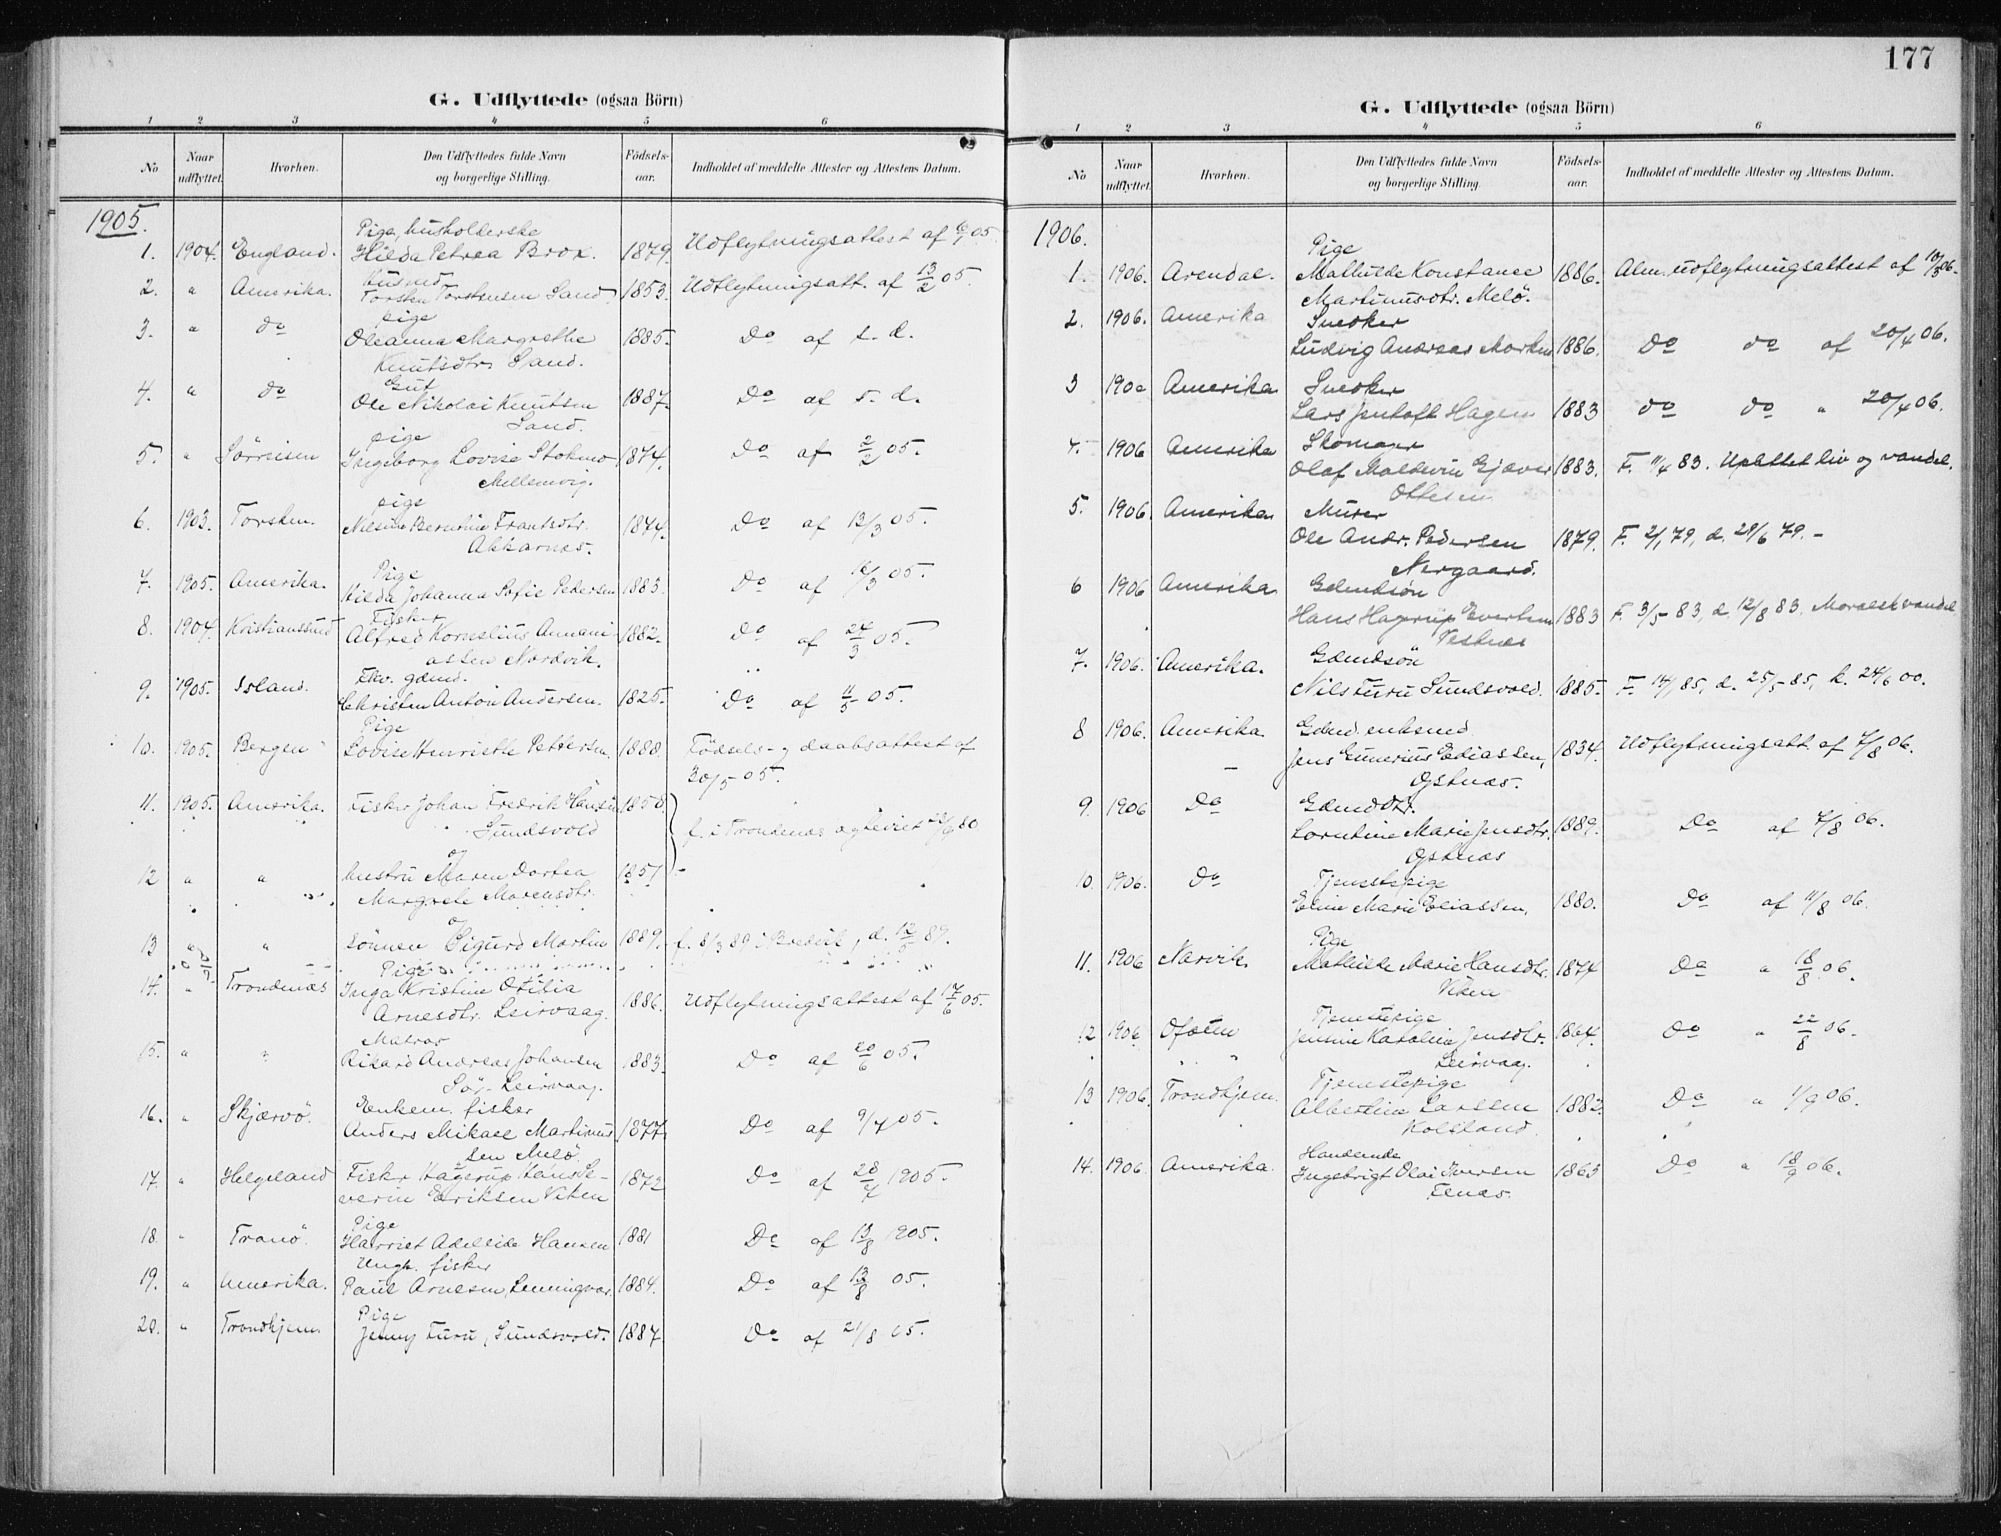 G. Udflyttede (ogsaa Börn)
1 2 3 4 5 6
No Naar udflyttet. Hvorhen. Den Udflyttedes fulde Navn og borgerlige Stilling. Födsels-aar. Indholdet af meddelte Attester og Attestens Datum.
1905.
Pige, husholderske
1. 1904. England. Hilda Petrea Brox. 1879. Udflytningsattest af 6/1 05.
Husmd
2. " Amerika. Torsten Torstensen Sand, 1853. Udflytningsatt. af 13/2 05.
pige
3. " do Oleanna Margrethe 1885. Do af s. d.
Knutsdtr Sand.
Gut
4. " do Ole Nikolai Knutsen 1887. Do af s. d.
Sand.
pige
5. " Sörreisen Ingeborg Lovise Stokmo 1874. Do af 2/2 05.
Mellemvig.
pige
6. 1903. Torsken. Nilsine Berntine Frantsdtr. 1874. Do af 13/3 05.
Akkarnæs.
Pige
7. 1905. Amerika. Hilda Johanna Sofie Pedersen 1883. Do af /3 05.
Fisker
8. 1904. Kristianssund Alfred Kornelius Annani- 1882. Do af 24/3 05.
assen Nordvik.
Fhv. gdmd.
9. 1905. Island. Christen Anton Andersen. 1825. Do af 11/5 05.
Pige
10. 1905. Bergen Lovise Henriette Pettersen. 1888. Födsels- g daabsattest af
30/5 05.
11. 1905. Amerika. Fisker Johan Fredrik Hansen 1850
Sundsvold f. i Trondenæs og viet /9 80
og
12 " " hustru Maren Dortea 1851 -
Margrete Marensdtr.
og
13 " " sönnen Sigurd Martin 1889. f. 8/3 89 i Bredvik, d. 12/5 89.
Pige
14. " Trondenæs Inga Kristine Otilia 1886. Udflytningsattest af 17/6 05.
Arnesdtr. Leirvaag.
Matros
15. " " Rikard Andreas Johansen 1883. Do af 20/6 05.
Sör-Leirvaag.
Enkem. fisker
16. " Skjærvö. Anders Mikael Martinus- 1877. Do af 9/7 05.
sen Melö.
17. " Helgeland Fisker Hagerup Hans Se- 1872 Do af 28/7 1905.
verin Eriksen Viken
Pige
18. " Tranö. Harriet Adelide Hansen 1881 Do af 13/8 1905.
Ungk. fisker
19. " Amerika. Paul Arnesen, Lemmingvær 1884. Do af 13/8 05.
Pige
20. " Trondhjem. Jenny Furu, Sundsvold. 1887 Do af 21/8 05.
177
G. Udflyttede (ogsaa Börn)
1 2 3 4 5 6
No Naar udflyttet Hvorhen. Den Udflyttedes fulde Navn og borgerlige Stilling. Födsels-aar. Indholdet af meddelte Attester og Attestens Datum.
1906.
Pige
1. 1906. Arendal. Mathilde Konstanse 1886. Alm. udflytningsattest af 10/3 06.
Martinusdtr. Melö.
2. 1906. Amerika Snedker
Ludvig Andreas Morken 1886. Do do af 20/4 06.
3 1906 Amerika Snedker
Lars Jentoft Hagen 1883 do do " 20/4 06.
4. 1906 Amerika Skomager
Olaf Maldevin Gjæver 1883. F. 11/4 83. Uplettet liv og vandel.
Ottesen
5. 1906. Amerika Murer
Ole Andr. Pedersen 1879. F. 2/1 79, d. 28/6 79. -
Nergaard.
6 1906 Amerika Gdmdsön
Hans Hagerup Evertsen 1883 F. 3/5 83, d. 12/8 83. Moralsk vandel
Vestnes
7. 1906. Amerika. Gdmdsön
Nils Furu Sundsvold. 1885. F. 14/1 85, d. 25/5 85, k. 24/6 00.
8 1906. Amerika Gdmd. enkemd
Jens Eunerius Eliassen, 1834. Udflytningsatt. af 7/8 06.
Östnæs.
9. 1906 Do Gdmd dtr.
Lorentine Marie Jensdtr. 1889. Do af 7/8 06.
Östnæs
10. 1906. Do Tjenestepige
Eline Marie Eliassen, 1880. Do af 11/8 06.
Pige
11. 1906 Narvik. Mathilde Marie Hansdtr. 1874 Do " 18/8 06.
Viken
Tjenestepige
12 1906 Ofoten Jensine Karoline Jensdtr. 1864. Do " 22/8 06.
Leirvaag.
13 1906. Trondhjem. Tjenestepige
Albertine Larssen 1882. Do " 1/9 06.
Kolsland.
Handlende
14. 1906. Amerika. Ingebrigt Olai Iversen 1863 Do " 18/9 06.
Elnæs.